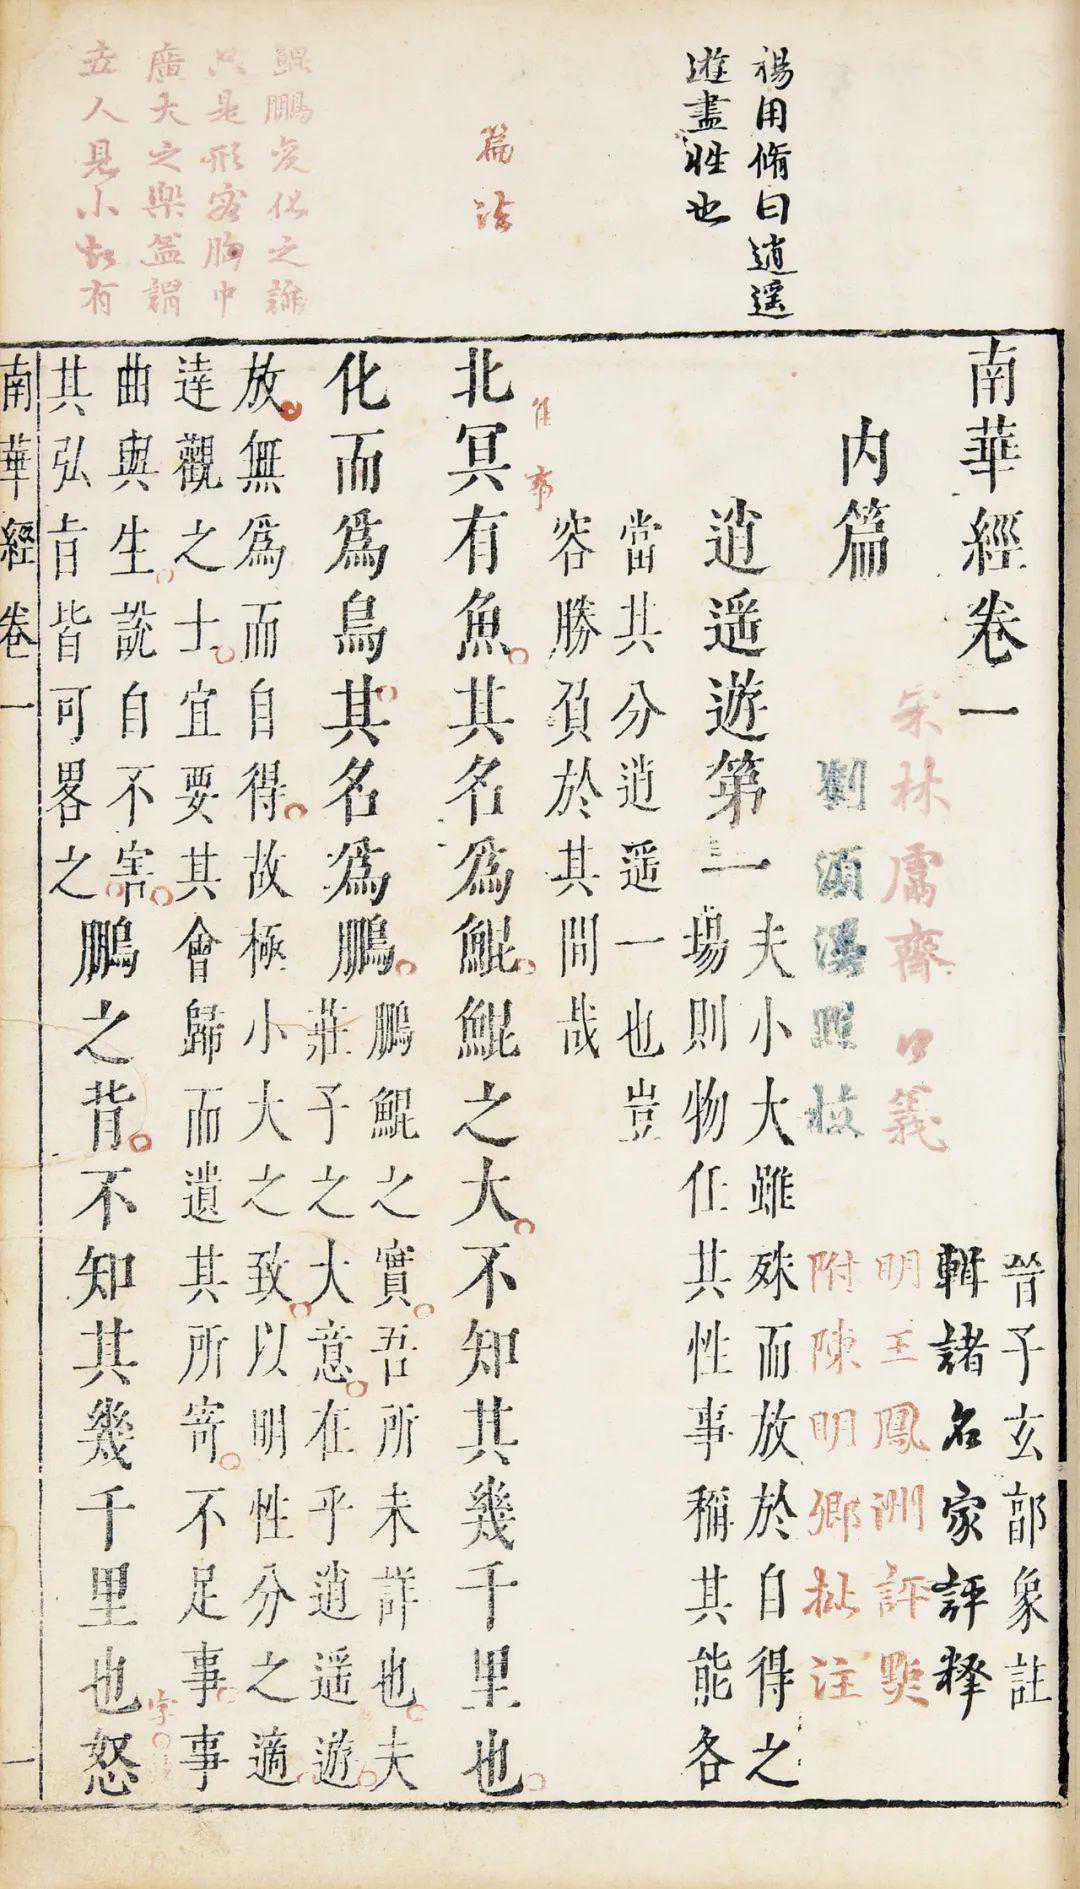 楊用脩曰逍遥
遊盡性也
篇法
鯤鵬變化之論
只是形容胸中
廣大之樂盖謂
世人見小故有
南華經卷一
晉子玄郭象註
輯諸名家評釋
宋林鬳齋口義
明王鳳洲評點
劉須溪點校
附陳明卿批注
内篇
逍遥遊第一
夫小大雖殊而放於自得之
場則物任其性事稱其能各
當其分逍遥一也豈
容勝負於其間哉
北冥有魚其名爲鯤鯤之大不知其幾千里也
化而爲鳥其名爲鵬
鵬鯤之實吾所未詳也夫
莊子之大意在乎逍遥遊
放無爲而自得故極小大之致以明性分之適
達觀之士宜要其會歸而遺其所寄不足事事
曲與生說自不害
其弘旨皆可畧之
鵬之背不知其幾千里也怒
字
南華經卷一
一